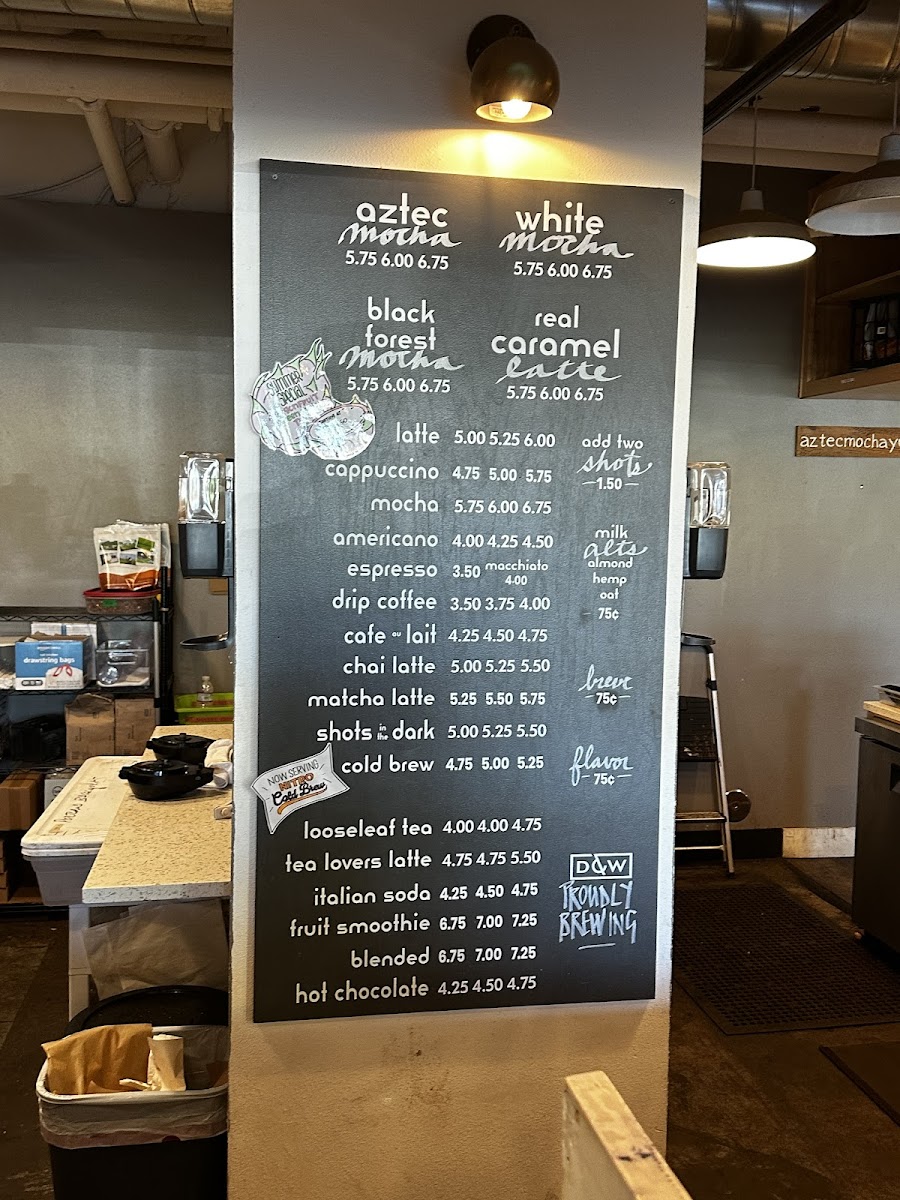 aztec
mocha
5.75 6.00 6.75
white
mocha
5.75 6.00 6.75
black
forest
mocha
5.75 6.00 6.75
real
caramel
latte
5.75 6.00 6.75
Summer
Special
latte 5.00 5.25 6.00
cappuccino 4.75 5.00 5.75
mocha 5.75 6.00 6.75
americano 4.00 4.25 4.50
espresso 3.50 macchiato 4.00
drip coffee 3.50 3.75 4.00
cafe au lait 4.25 4.50 4.75
chai latte 5.00 5.25 5.50
matcha latte 5.25 5.50 5.75
shots in the dark 5.00 5.25 5.50
cold brew 4.75 5.00 5.25
NOW SERVING
NITRO
Cold Brew
looseleaf tea 4.00 4.00 4.75
tea lovers latte 4.75 4.75 5.50
italian soda 4.25 4.50 4.75
fruit smoothie 6.75 7.00 7.25
blended 6.75 7.00 7.25
hot chocolate 4.25 4.50 4.75
add two
shots
—1.50—
milk
alts
almond
hemp
oat
75¢
breve
75¢
flavor
—75¢—
D&W
PROUDLY
BREWING
aztecmochay
drawstring bags